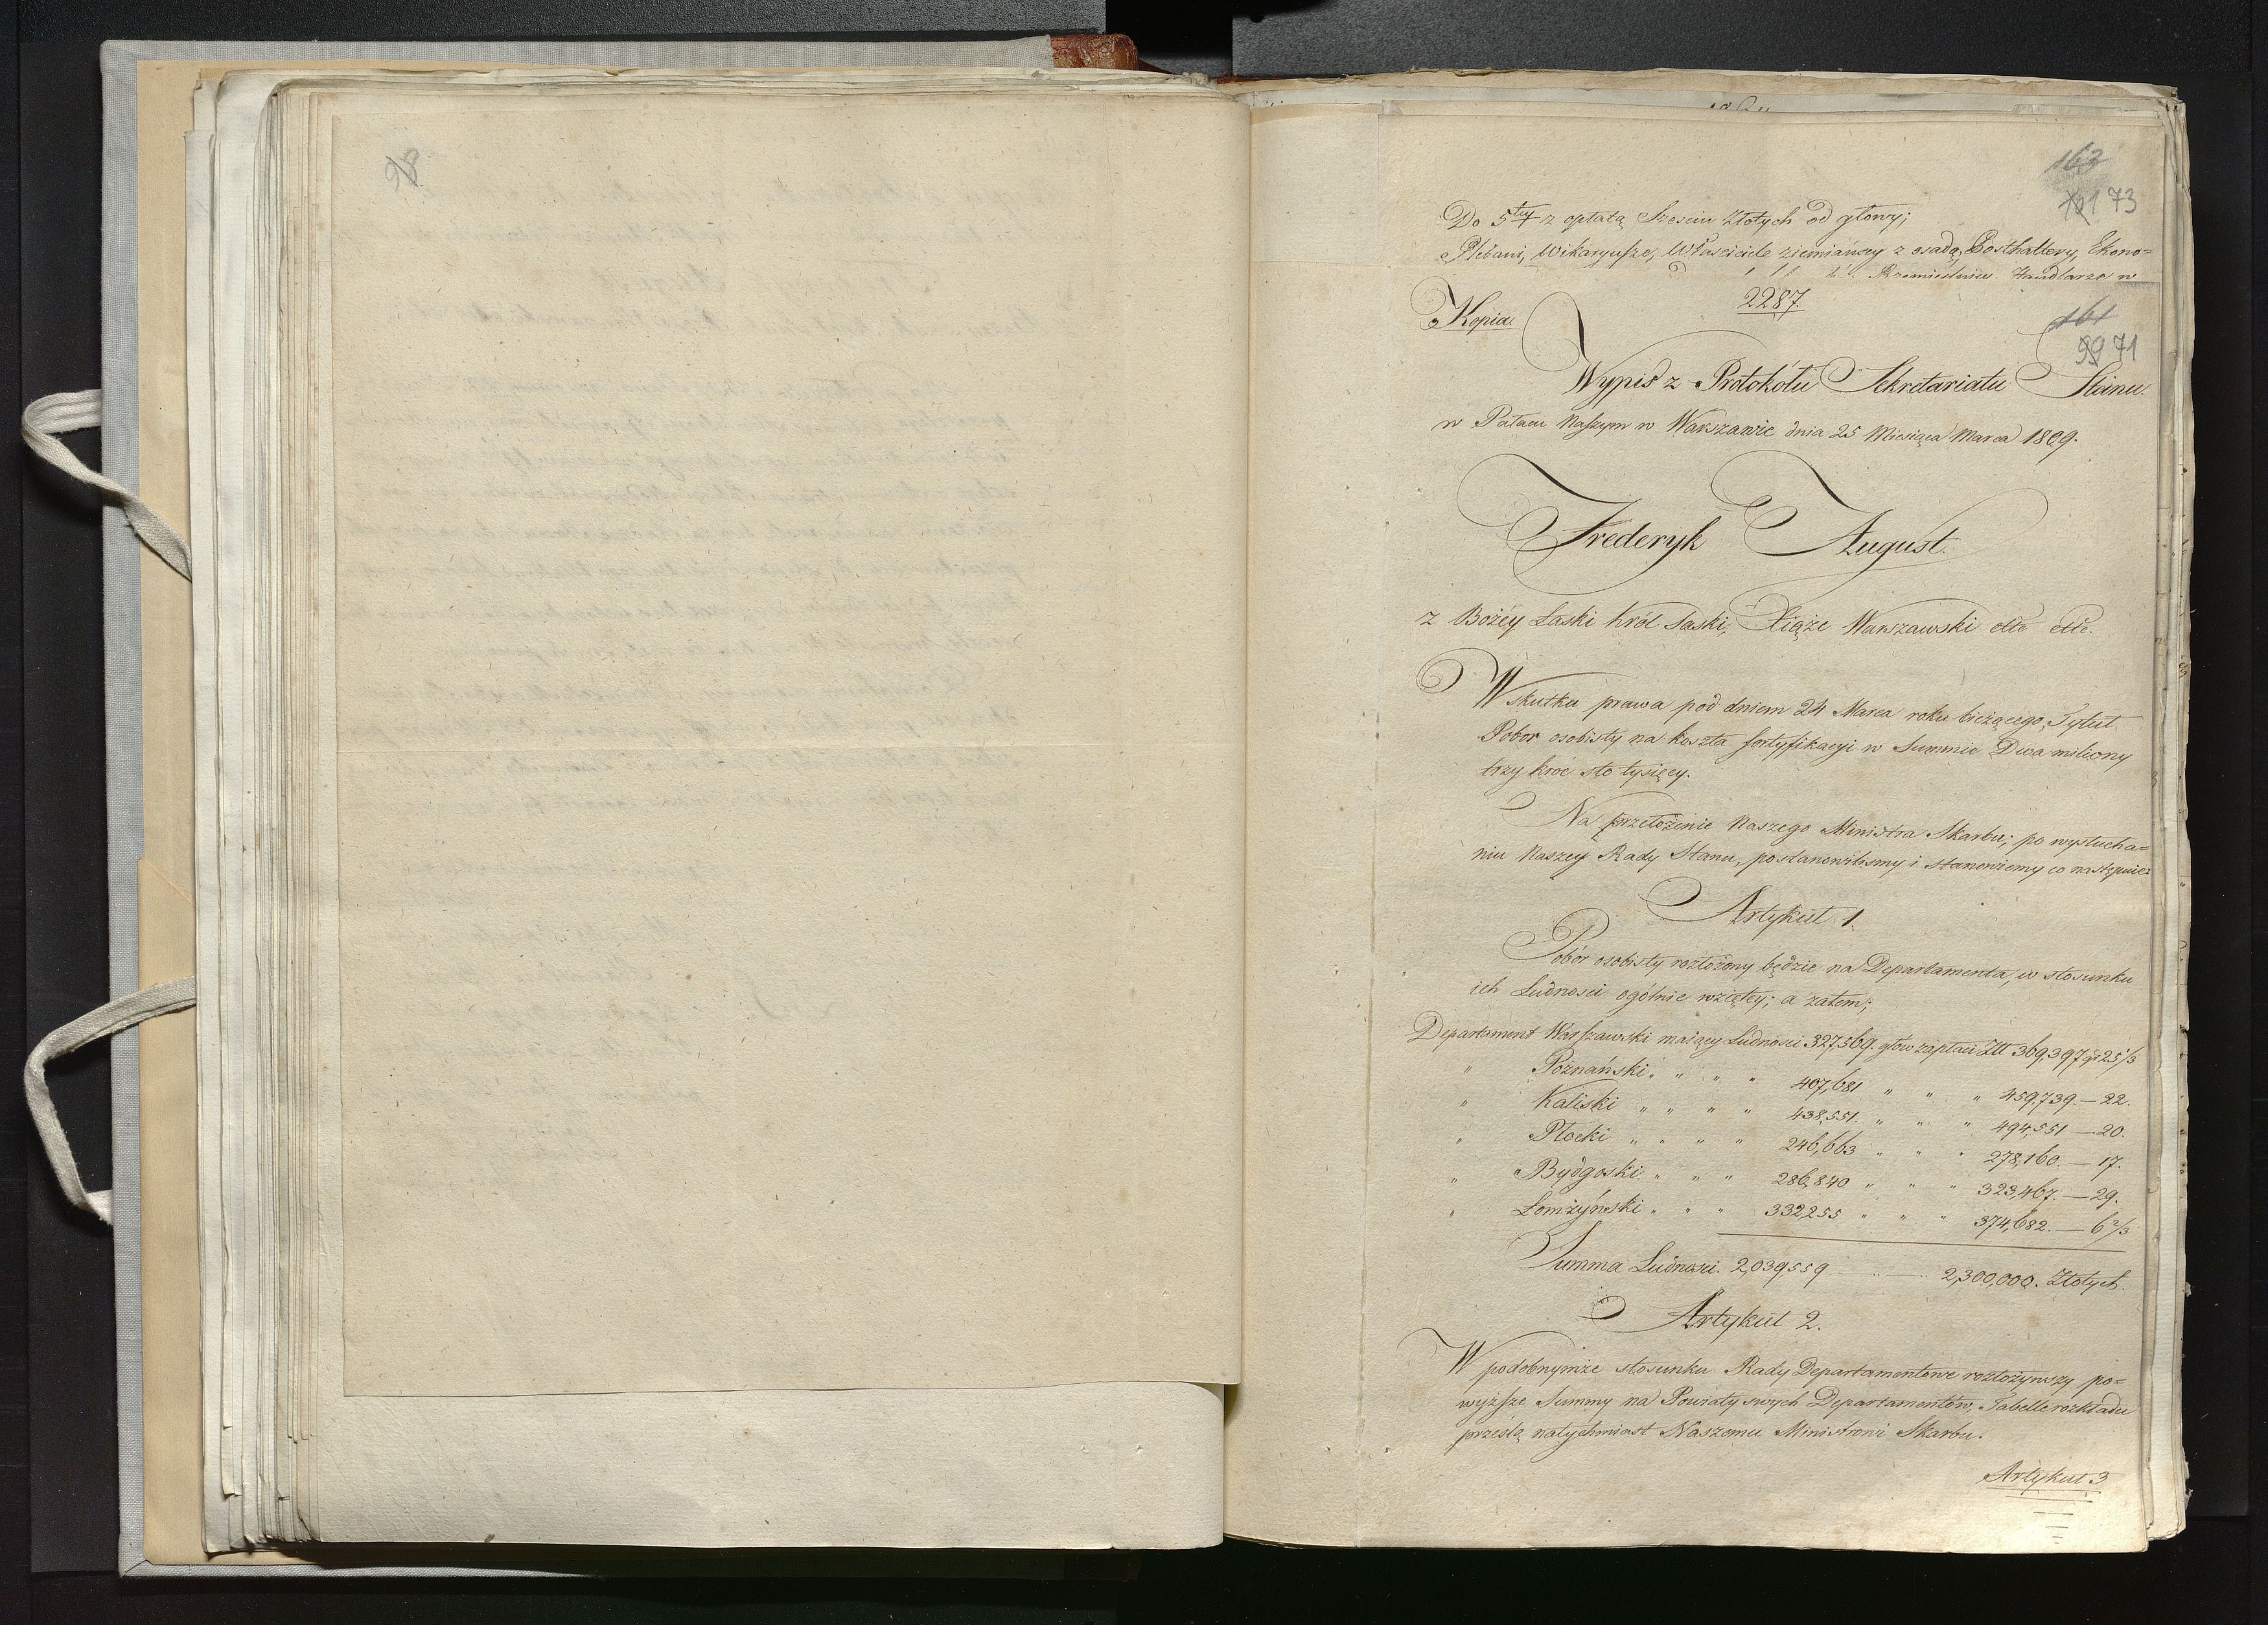 98
163
101 73
Do 5tey z opłatą Szesciu Złotych od głowy;
Plebani, Wikaryusze, Właściciele ziemiańscy z osadą, Posthaltery, Ekono=
Rzemieslnicy Handlarze w
2287.
Kopia.
161
99 71
Wypis z Protokołu Sekretariatu Stanu.
w Pałacu Naszym w Warszawie dnia 25 Miesiąca Marca 1809.
Frederyk August.
z Bożéy Łaski Król Saski, Xiąże Warszawski etc etc.
W skutku prawa pod dniem 24 Marca roku bieżącego, Tytuł
Pobor osobisty na koszta fortyfikacyi w Summie Dwa miliony
trzy kroć sto tysięcy.
Na przełożenie Naszego Ministra Skarbu; po wysłucha=
niu Naszey Rady Stanu, postanowiliśmy i stanowiemy co następuie:
Artykuł 1.
Pobór osobisty rozłożony będzie na Departamenta, w stosunku
ich Ludnosci ogólnie wziętey; a zatem;
Departament Warszawski maiący Ludnosci 327,569. głow zapłaci Złt 369,397 gr 25 1/3
" Poznański " " " " 407,681 " " " 459,739.—22.
" Kaliski " " " " 438,551. " " " 494,551—20.
" Płocki " " " " 246,663 " " " 278,160.—17.
" Bydgoski " " " 286,840 " " " 323,467.—29.
" Łomżyński " " " 332255 " " " 374,682.—6 2/3
Summa Ludnosci. 2,039,559 — " — 2,300,000. Złotych.
Artykuł 2.
W podobnymże stosunku Rady Departamentowe rozłożywszy po=
wyższe Summy na Powiaty swych Departamentów, Tabelle rozkładu
prześlą natychmiast Naszemu Ministrowi Skarbu.
Artykuł 3